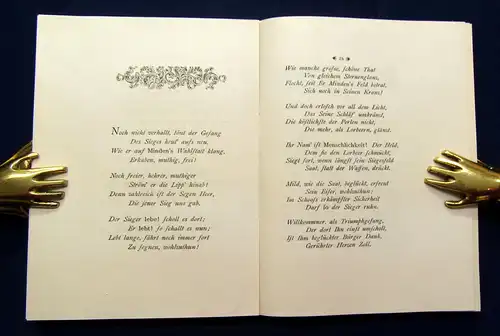 Noch nicht verhallt, tönt der Gesang
Des Sieges heut' aufs neu,
Wie er auf Minden's Wahlstatt klang,
Erhaben, muthig, frei!
Noch freier, hehrer, muthiger
Ström' er die Lipp' hinab!
Denn zahlreich ist der Segen Heer,
Die jener Sieg uns gab.
Der Sieger lebe! scholl es dort;
Er lebt! so schallt es nun;
Lebt lange, fährt noch immer fort
Zu segnen, wohlzuthun!
15
Wie manche große, schöne That
Von gleichem Sternenglanz,
Flocht, seit Er Minden's Feld betrat,
Sich noch in Seinen Kranz!
Und doch erlosch vor all dem Licht,
Das Seine Schläf' umkränzt,
Die köstlichste der Perlen nicht,
Die mehr, als Lorbeern, glänzt.
Ihr Nam' ist Menschlichkeit! Der Held,
Dem so den Lorbeer schmückt,
Siegt fort, wenn längst sein Siegesfeld
Saat, statt der Waffen, drückt.
Mild, wie die Saat, beglückt, erfreut
Sein Eifer, wohlzuthun;
Im Schooß erkämpfter Sicherheit
Darf So der Sieger ruhn.
Willkommner, als Triumphgesang,
Der dort Ihn einst umscholl,
Ist Ihm beglückter Bürger Dank,
Gerührter Herzen Zoll.